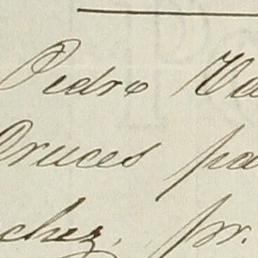 Pedro Va
Cruces pa
chez, pr.